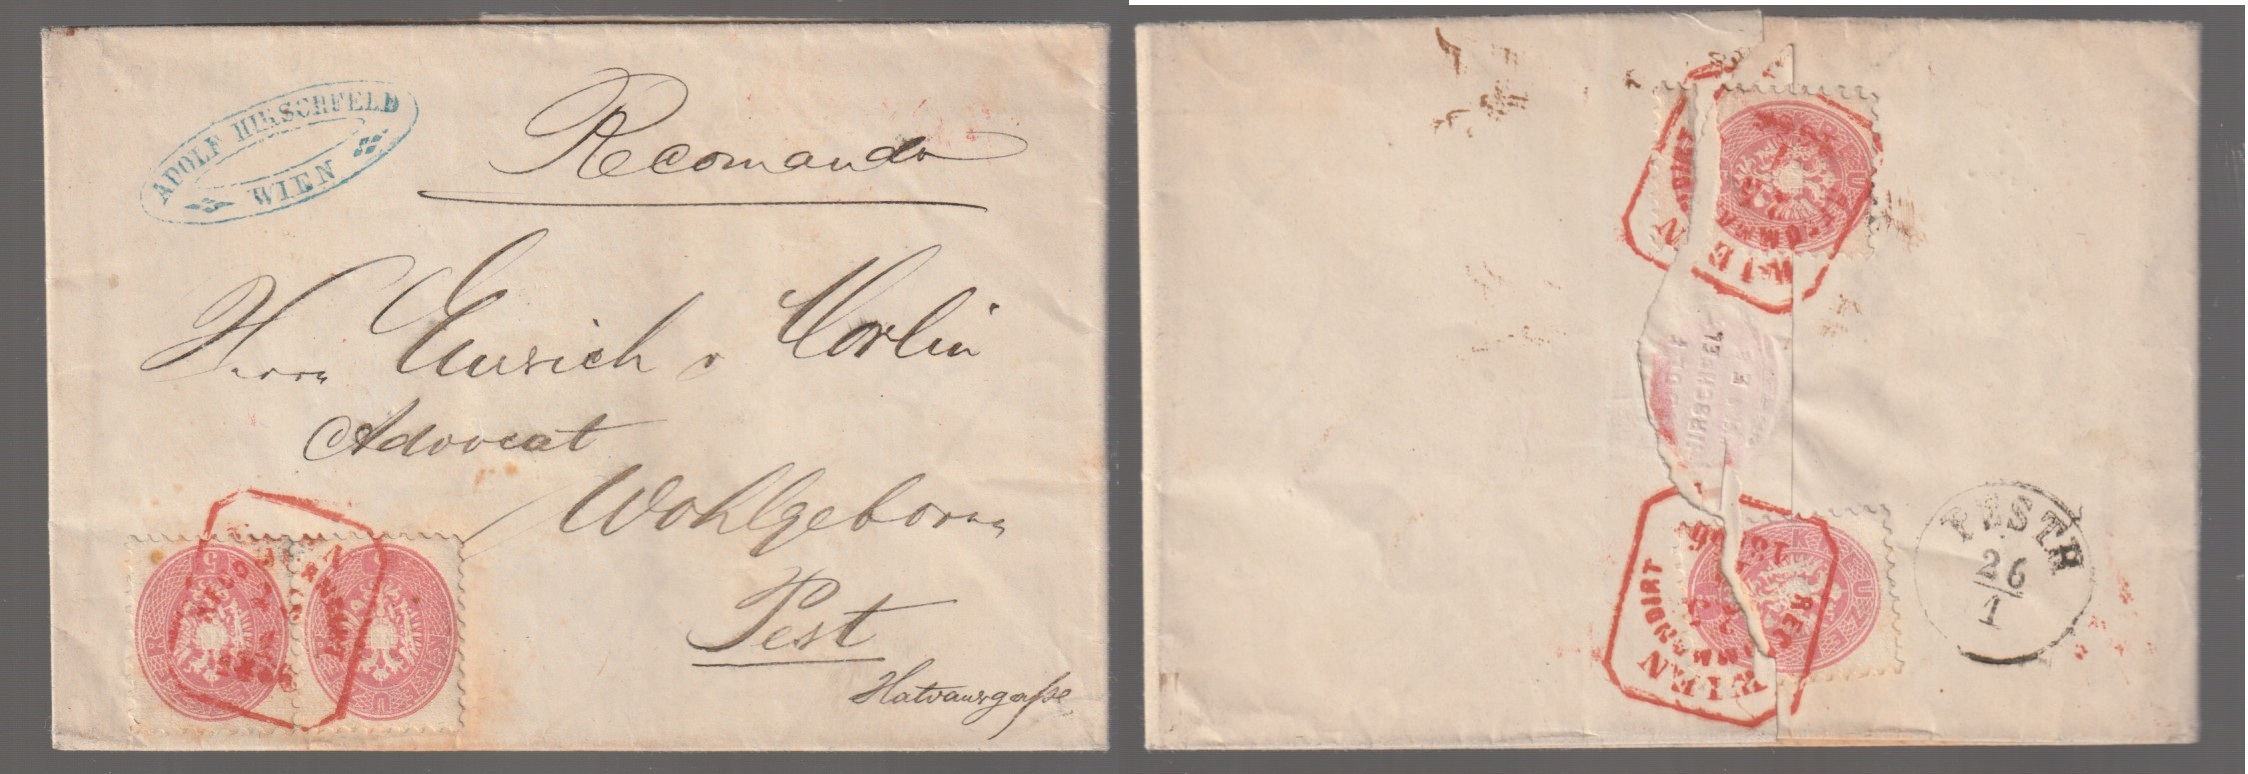 ADOLF HIRSCHFELD
WIEN
Recomando
Herrn Heinrich v Horlin
Advocat
Wohlgeboren
Pest
Hatvanergasse
WIEN
WIEN
RECOMMANDIRT
HIRSCHFEL
PESTH
26
1